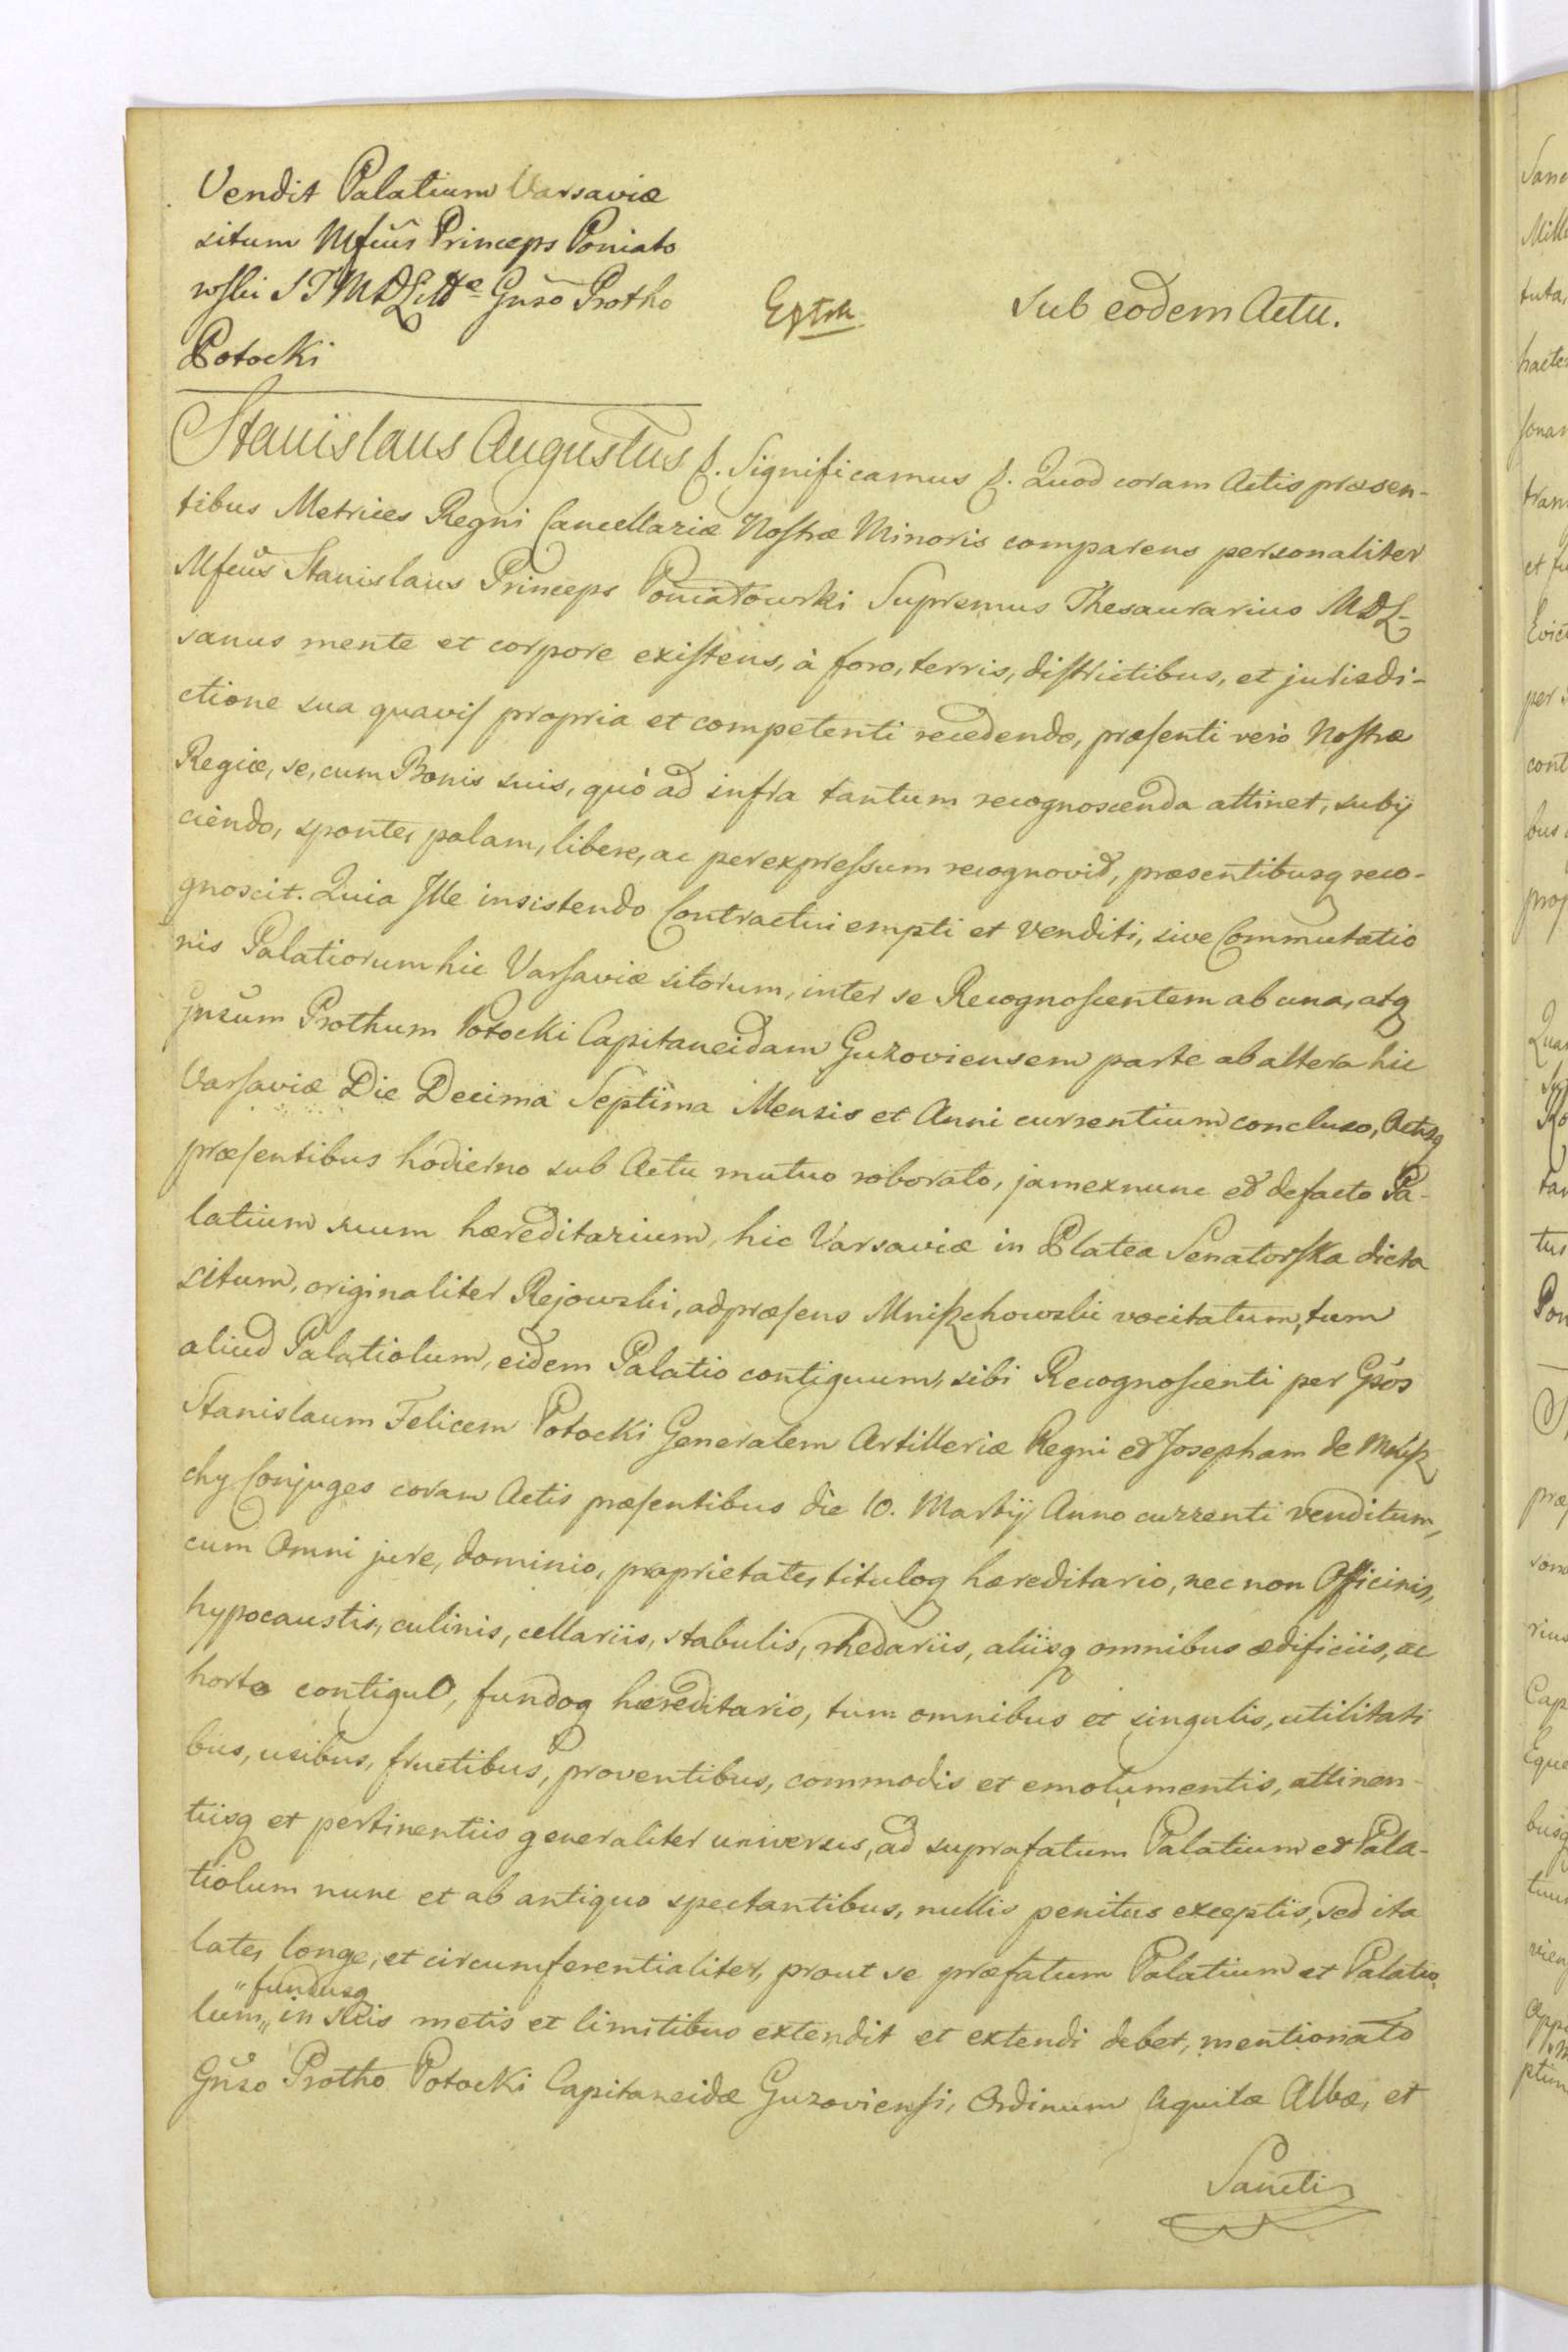 Vendit Palatium Varsaviæ
situm Mfcus Princeps Poniato
wski S T M D Litt Gnso Protho
Potocki
Extrh
Sub eodem Actu.
Stanislaus Augustus &. Significamus &. Quod coram Actis præsen-
tibus Metrices Regni Cancellariæ Nostræ Minoris comparens personaliter
Mfcus Stanislaus Princeps Poniatowski Supremus Thesaurarius MDL
sanus mente et corpore existens, à foro, terris, districtibus, et jurisdi-
ctione sua quavis propria et competenti recedendo, præsenti verò Nostræ
Regiæ, se, cum Bonis suis, quò ad infra tantum recognoscenda attinet, subij
ciendo, sponte, palam, libere, ac perexpressum recognovit, præsentibusq reco-
gnoscit. Quia Ille insistendo Contractui empti et venditi, sive Commutatio
nis Palatiorum hic Varsaviæ sitorum, inter se Recognoscentem ab una, atq
Gnsum Prothum Potocki Capitaneidam Guzoviensem parte ab altera hic
Varsaviæ Die Decima Septima Mensis et Anni currentium concluso, Actisq
præsentibus hodierno sub Actu mutuo roborato, jamexnunc et defacto Pa-
latium suum hæreditarium, hic Varsaviæ in Platea Senatorska dicta
situm, originaliter Rejowski, adpræsens Mniszchowski vocitatum, tum
aliud Palatiolum, eidem Palatio contiguum, sibi Recognoscenti per Gsos
Stanislaum Felicem Potocki Generalem Artilleriæ Regni et Josepham de Mnisz
chy Conjuges coram Actis præsentibus die 10. Martij Anno currenti venditum,
cum Omni jure, dominio, proprietate, tituloq hæreditario, nec non Officinis,
hypocaustis, culinis, cellariis, stabulis, rhedariis, aliisq omnibus ædificiis, ac
horto contiguo, fundoq hæreditario, tum omnibus et singulis, utilitati
bus, usibus, fructibus, proventibus, commodis et emolumentis, attinen-
tiisq et pertinentiis generaliter universis, ad suprafatum Palatium et Pala-
tiolum nunc et ab antiquo spectantibus, nullis penitus exceptis, sed ita
late, longe, et circumferentialiter, prout se præfatum Palatium et Palatio
"fundusq
lum" in suis metis et limitibus extendit et extendi debet, mentionato
Gnso Protho Potocki Capitaneidæ Guzoviensi, Ordinum Aquilæ Albæ, et
Sancti